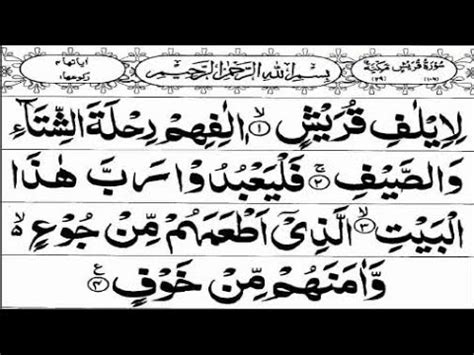 سُوْرَةُ قُرَيْشٍ مَكِّيَّةٌ بِسْمِ اللّٰهِ الرَّحْمٰنِ الرَّحِيْمِ اٰيَاتُهَا ۴
رُكُوْعُهَا ۱
لِاِيْلٰفِ قُرَيْشٍ ۙ﴿۱﴾ اٖلٰفِهِمْ رِحْلَةَ الشِّتَآءِ
وَالصَّيْفِ ۚ﴿۲﴾ فَلْيَعْبُدُوْا رَبَّ هٰذَا
الْبَيْتِ ۙ﴿۳﴾ الَّذِيْٓ اَطْعَمَهُمْ مِّنْ جُوْعٍ ۙ
وَّاٰمَنَهُمْ مِّنْ خَوْفٍ ﴿۴﴾ ع